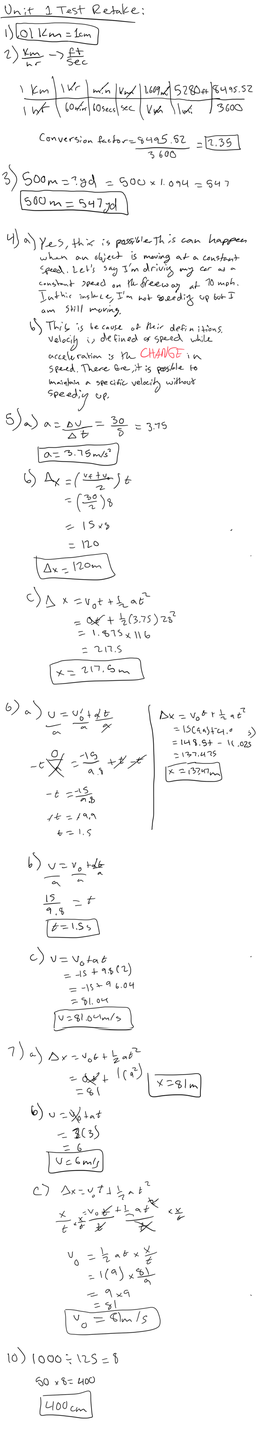 Unit 1 Test Retake:
1) .01 Km = 1cm
2) Km/hr → ft/sec
1 Km | 1 hr | 1 min | | 1 mile | 5280 ft | 8495.52
1 hr | 60 min | 60 secs | sec | Km | 1 mi. | 3600
Conversion factor = 8495.52/3600 = 2.35
3) 500m = ? yd = 500 × 1.094 = 547
500 m = 547 yd
4) a) Yes, this is possible. This can happen
when an object is moving at a constant
speed. Let's say I'm driving my car at a
constant speed on the freeway at 70 mph.
In this instance, I'm not speeding up but I
am still moving.
b) This is because of their definitions.
Velocity is defined as speed while
acceleration is the CHANGE in
speed. Therefore, it is possible to
maintain a specific velocity without
speeding up.
5) a) a = Δv/Δt = 30/8 = 3.75
a = 3.75 m/s²
b) Δx = (vf+vo/2) t
= (30/2) 8
= 15 × 8
= 120
Δx = 120m
c) Δx = v₀t + ½ at²
= 0t + ½ (3.75) 28²
= 1.875 × 116
= 217.5
x = 217.5m
6) a) v/a = v₀/a + at/a
-t 0/a = -15/9.8 + t - t
-t = -15/9.8
t = 1.5
Δx = v₀t + ½ at²
= 148.5t - 11.025
= 137.475
b) v/a = v₀/a + at/a
15/9.8 = t
t = 1.5s
c) v = v₀ + at
= -15 + 9.8(2)
= -15 + 96.04
= 81.04
v = 81.04 m/s
7) a) Δx = v₀t + ½ at²
= 0t + 1(9²)
= 81
x = 81m
b) v = v₀ + at
= 2(3)
= 6
v = 6m/s
c) Δx = v₀t + ½ at²
x/t · x/t = v₀t/t + ½ at²/t × x/t
v₀ = ½ at × x/t
= 1(9) × 81/9
= 9 × 9
= 81
v₀ = 81m/s
10) 1000 ÷ 125 = 8
50 × 8 = 400
400 cm